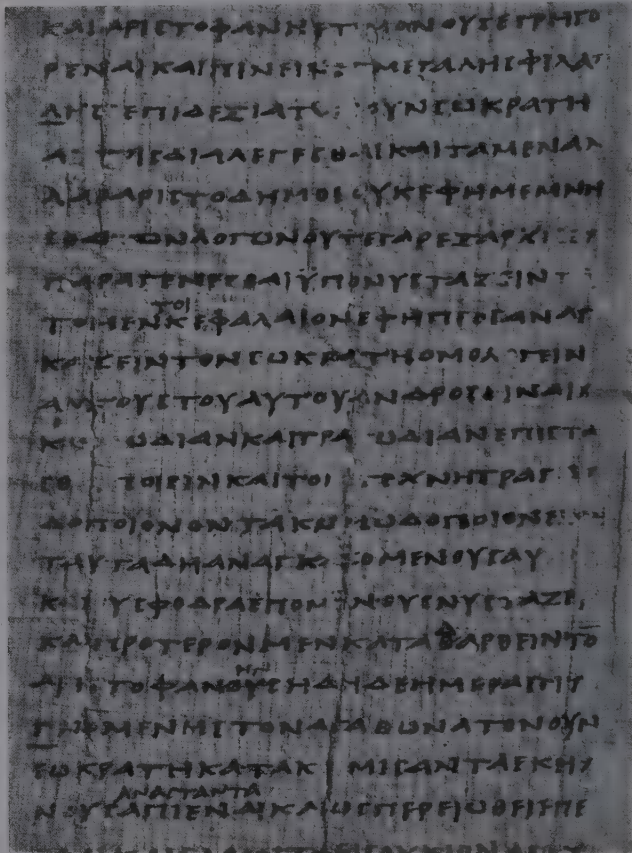 ΚΑΙ ΑΡΙϹΤΟΦΑΝΗ ΕΤΙ ΜΟΝΟΥϹ ΕΓΡΗΓΟ
ΡΕΝΑΙ ΚΑΙ ΠΙΝΕΙΝ ΜΕΓΑΛΗϹ ΦΙΛΑ
ΛΗϹ ΕΠΙΔΕΞΙΑ ΟΥΝ ϹΩΚΡΑΤΗ
ΔΙΑΛΕΓΕϹΘΑΙ ΚΑΙ ΤΑ ΜΕΝ ΑΛ
ΛΑ ΑΡΙϹΤΟΔΗΜΟϹ ΟΥΚ ΕΦΗ ΜΕΜΝΗ
ϹΘΑΙ ΤΩΝ ΛΟΓΩΝ ΟΥΤΕ ΓΑΡ ΕΞ ΑΡΧΗϹ
ΠΑΡΑΓΕΝΕϹΘΑΙ ΥΠΟΝΥϹΤΑΖΕΙΝ Τ
ΤΟ ΜΕΝ ΤΟΙ ΚΕΦΑΛΑΙΟΝ ΕΦΗ ΠΡΟϹΑΝΑΓ
ΚΑΖΕΙΝ ΤΟΝ ϹΩΚΡΑΤΗ ΟΜΟΛΟΓΕΙΝ
ΑΥΤΟΥϹ ΤΟΥ ΑΥΤΟΥ ΑΝΔΡΟϹ ΕΙΝΑΙ Κ
ΚΩ ΩΔΙΑΝ ΚΑΙ ΤΡΑ ΩΔΙΑΝ ΕΠΙϹΤΑ
ϹΘ ΠΟΙΕΙΝ ΚΑΙ ΤΟΙ ΤΕΧΝΗ ΤΡΑΓ
ΔΟΠΟΙΟΝ ΟΝΤΑ ΚΩΜΩΔΟΠΟΙΟΝ Ε
ΤΑΥΤΑ ΔΗ ΑΝΑΓΚΑΖΟΜΕΝΟΥϹ ΑΥ
Κ Ι ΥϹΦΟΔΡΑ ΕΠΟΜΕΝΟΥϹ ΝΥϹΤΑΖΕΙ
ΚΑΙ ΠΡΟΤΕΡΟΝ ΜΕΝ ΚΑΤΑΔΑΡΘΕΙΝ ΤΟ
ΑΡΙϹΤΟΦΑΝΟΥϹ ΗΔΗ ΔΕ ΗΜΕΡΑϹ ΓΙΓ
ΓΝΟΜΕΝΗϹ ΤΟΝ ΑΓΑΘΩΝΑ ΤΟΝ ΟΥΝ
ϹΩΚΡΑΤΗ ΚΑΤΑΚ ΜΙϹΑΝΤΑ ΕΚΕΙ
ΑΝΑϹΤΑΝΤΑ
ΝΟΥϹ ΑΠΙΕΝΑΙ ΚΑΙ ΩϹΠΕΡ ΕΙΩΘΕΙ ΕΠΕ